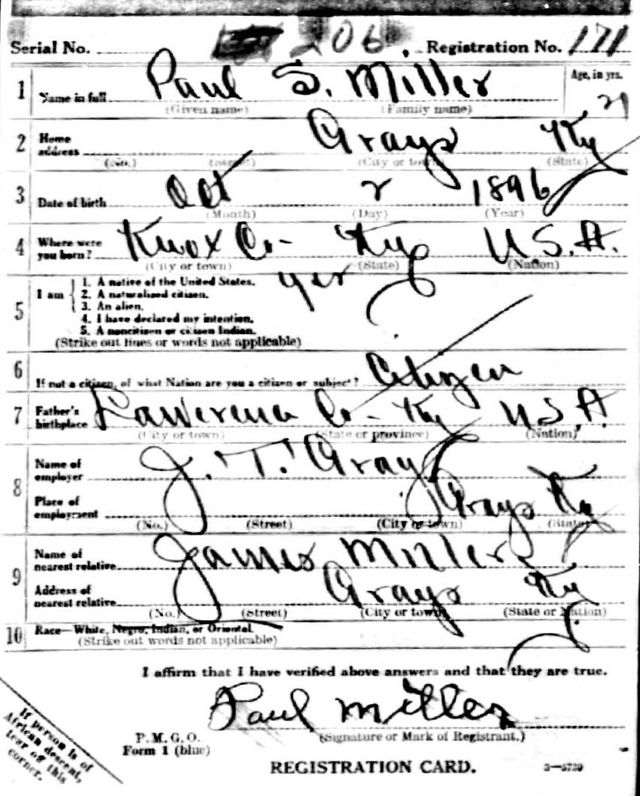 Serial No. 206. Registration No. 171
1 Name in full Paul S. Miller Age, in yrs. 21
(Given name) (Family name)
2 Home address Grays Ky
(No.) (Street) (City or town) (State)
3 Date of birth Oct 2 1896
(Month) (Day) (Year)
4 Where were you born? Knox Co- Ky U.S.A.
(City or town) (State) (Nation)
5 I am
1. A native of the United States. yes
2. A naturalized citizen.
3. An alien.
4. I have declared my intention.
5. A noncitizen or citizen Indian.
(Strike out lines or words not applicable)
6 If not a citizen, of what Nation are you a citizen or subject? Citizen
7 Father's birthplace Co- Ky U.S.A.
(City or town) (State or province) (Nation)
8 Name of employer J. T. Gray
Place of employment Grays Ky
(No.) (Street) (City or town) (State)
9 Name of nearest relative James Miller
Address of nearest relative Grays Ky
(No.) (Street) (City or town) (State or Nation)
10 Race—White, Negro, Indian, or Oriental.
(Strike out words not applicable)
I affirm that I have verified above answers and that they are true.
Paul Miller
P. M. G. O.
Form 1 (blue)
(Signature or Mark of Registrant.)
If person is of
African descent,
tear off this
corner.
REGISTRATION CARD.
3—5739